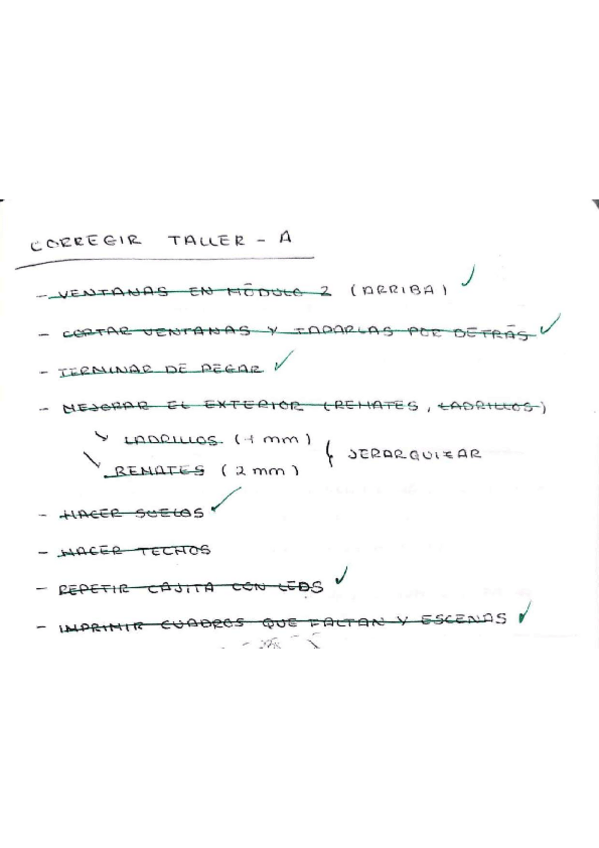 CORREGIR TALLER - A
- VENTANAS EN MÓDULO 2 (ARRIBA) ✓
- CORTAR VENTANAS Y TAPARLAS POR DETRÁS ✓
- TERMINAR DE PEGAR ✓
- MEJORAR EL EXTERIOR (REMATES, LADRILLOS)
LADRILLOS (1 mm)
REMATES (2 mm)
{ JERARQUIZAR
- HACER SUELOS ✓
- HACER TECHOS
- REPETIR CAJITA CON LEDS ✓
- IMPRIMIR CUADROS QUE FALTAN Y ESCENAS ✓